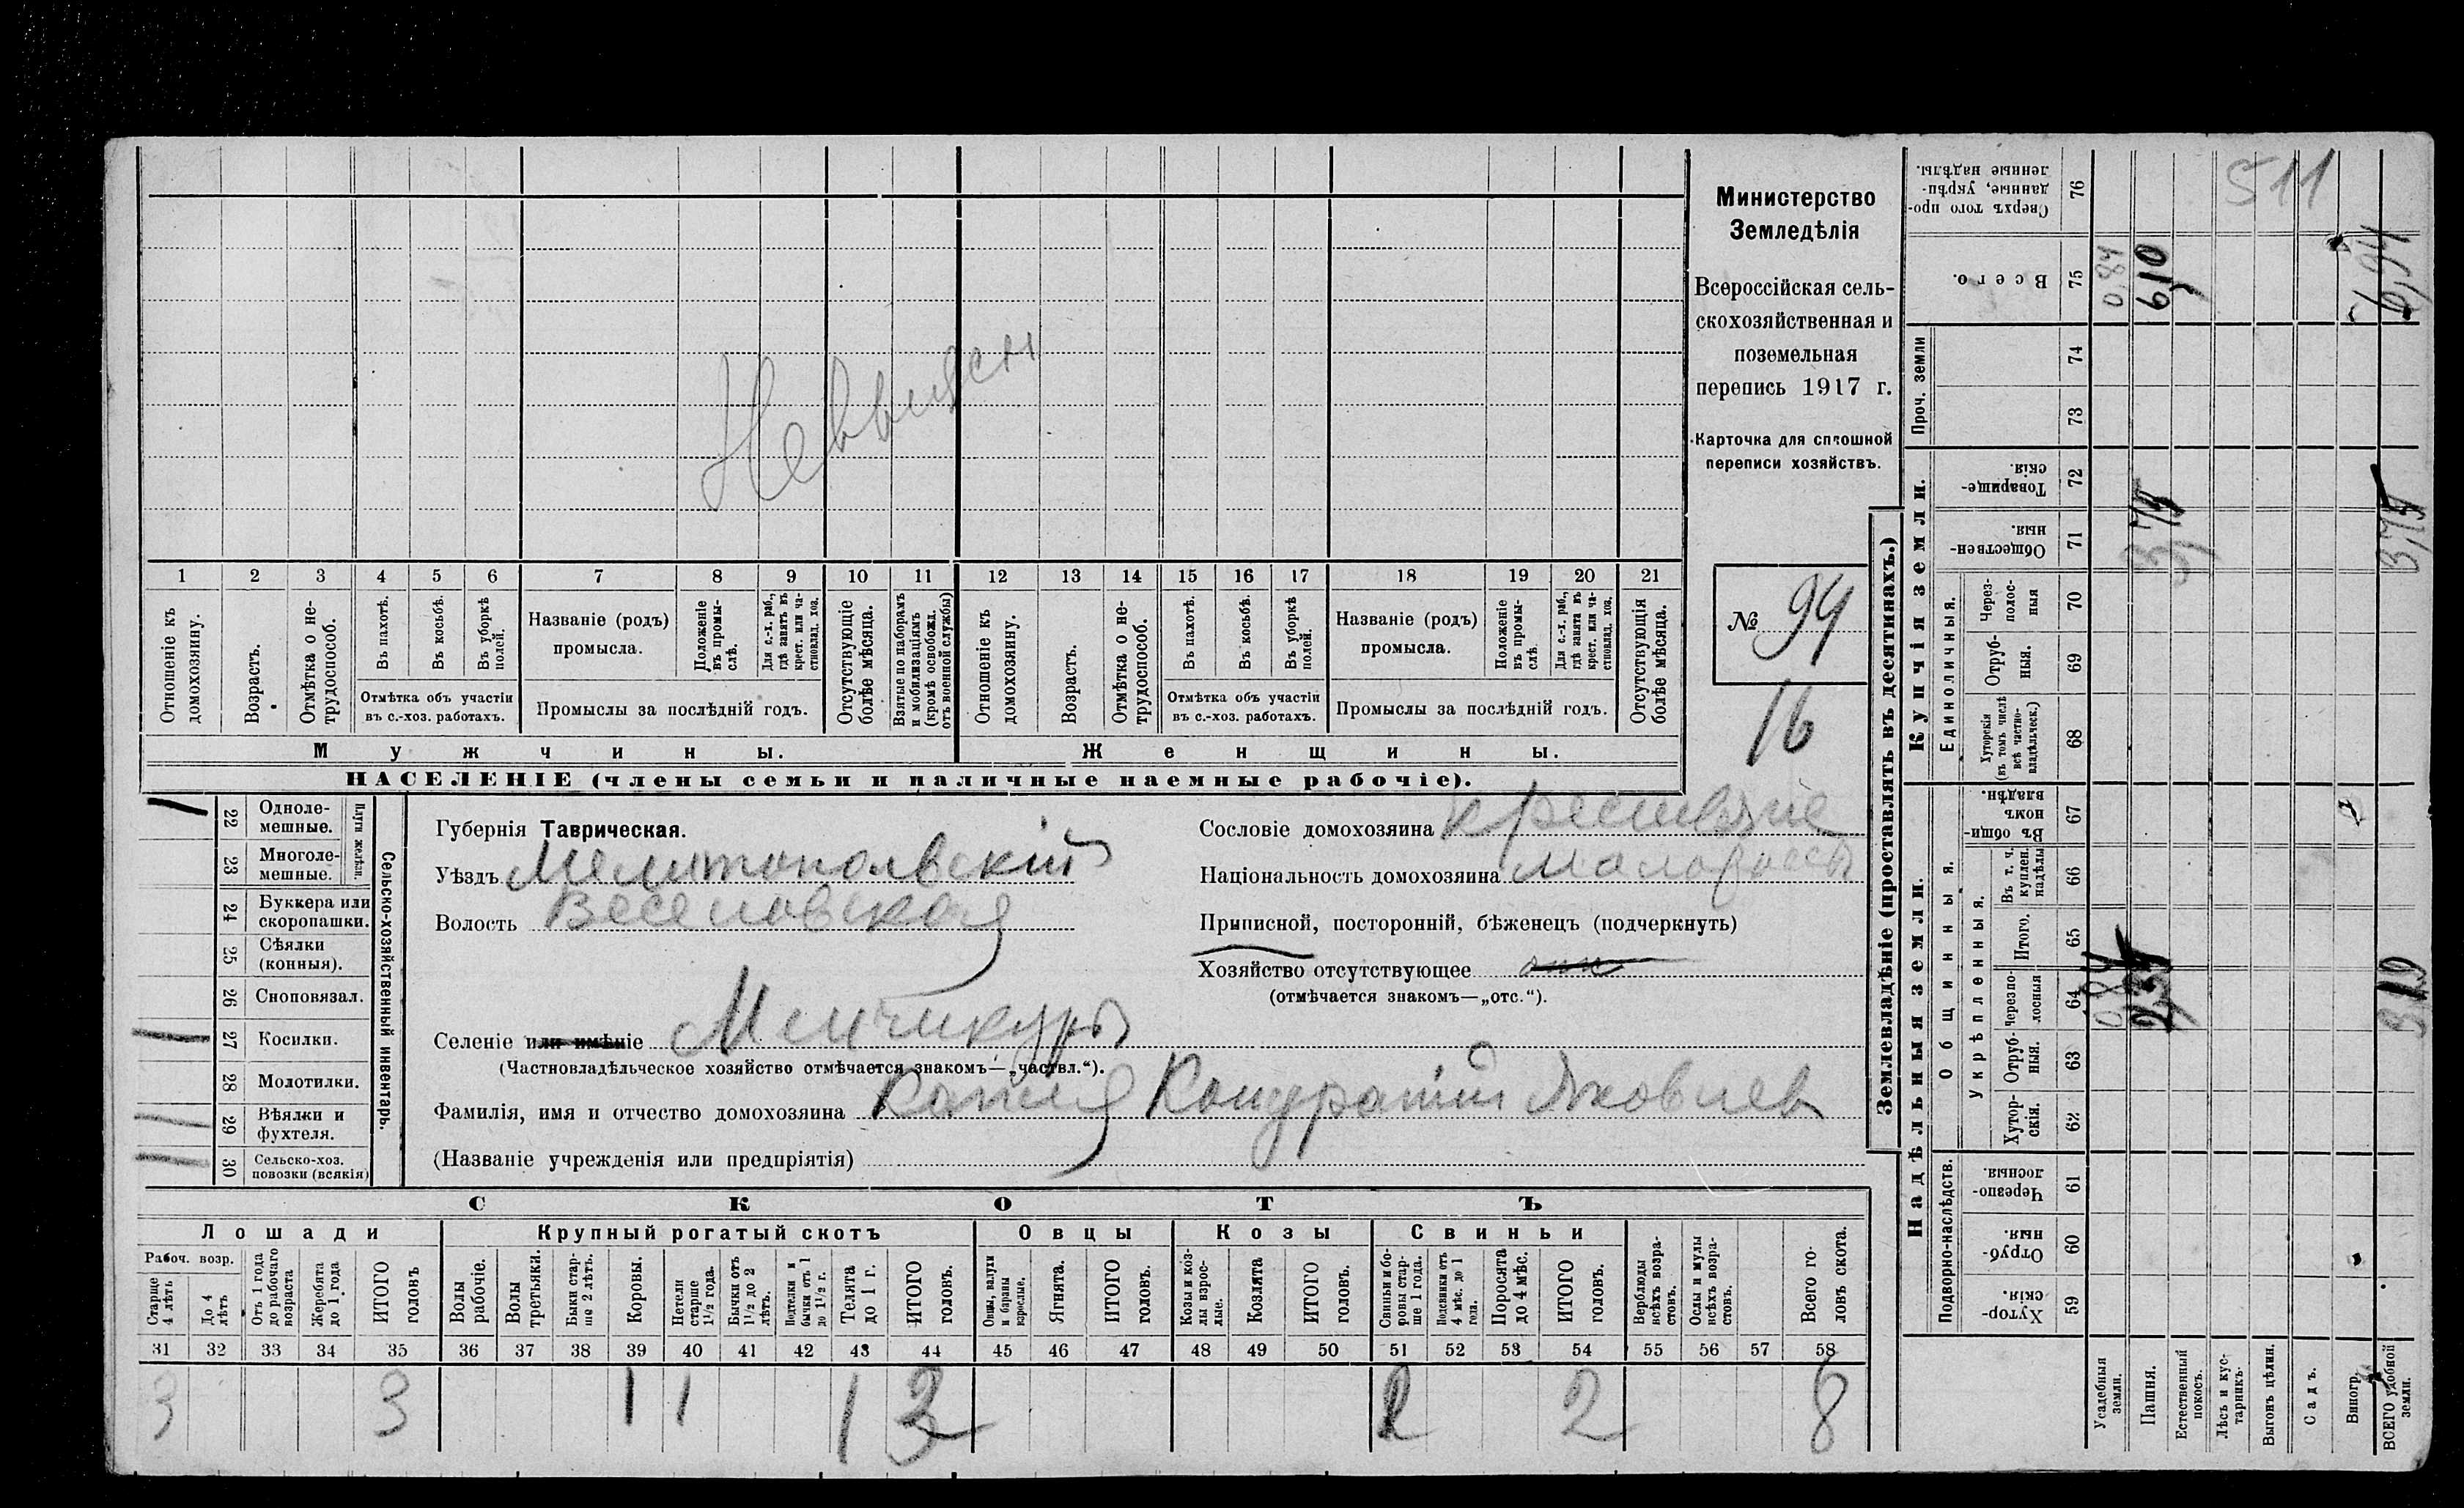 Невыясн
1 2 3 4 5 6 7 8 9 10 11 12 13 14 15 16 17 18 19 20 21
Отношеніе къ домохозяину.
Возрастъ.
Отмѣтка о нетрудоспособ.
Въ пахотѣ.
Въ косьбѣ.
Въ уборкѣ полей.
Отмѣтка объ участіи
въ с.-хоз. работахъ.
Названіе (родъ)
промысла.
Положеніе въ промыслѣ.
Для с.-х. раб., гдѣ занятъ въ крест. или частновлад. хоз.
Промыслы за послѣдній годъ.
Отсутствующіе болѣе мѣсяца.
Взятые по наборамъ и мобилизаціямъ (кромѣ освобожд. отъ военной службы)
Отношеніе къ домохозяину.
Возрастъ.
Отмѣтка о нетрудоспособ.
Въ пахотѣ.
Въ косьбѣ.
Въ уборкѣ полей.
Отмѣтка объ участіи
въ с.-хоз. работахъ.
Названіе (родъ)
промысла.
Положеніе въ промыслѣ.
Для с.-х. раб., гдѣ занята въ крест. или частновлад. хоз.
Промыслы за послѣдній годъ.
Отсутствующія болѣе мѣсяца.
Мужчины.
Женщины.
НАСЕЛЕНІЕ (члены семьи и наличные наемные рабочіе).
Министерство
Земледѣлія
Всероссійская сель-
скохозяйственная и
поземельная
перепись 1917 г.
Карточка для сплошной
переписи хозяйствъ.
№ 94
16
22 Одноле-
мешные.
23 Многоле-
мешные.
Плуги желѣзн.
24 Буккера или
скоропашки.
25 Сѣялки
(конныя).
26 Сноповязал.
27 Косилки.
28 Молотилки.
29 Вѣялки и
фухтеля.
30 Сельско-хоз.
повозки (всякія)
Сельско-хозяйственный инвентарь.
Губернія Таврическая.
Уѣздъ Мелитопольвскій
Волость Веселовская
Селеніе или имѣніе Менчикуры
(Частновладѣльческое хозяйство отмѣчается знакомъ—„частвл.“).
Фамилія, имя и отчество домохозяина Капля Кондратій Яковлев
(Названіе учрежденія или предпріятія)
Сословіе домохозяина крестьяне
Національность домохозяина малоросъ
Приписной, посторонній, бѣженецъ (подчеркнуть)
Хозяйство отсутствующее
(отмѣчается знакомъ—„отс.“).
СКОТЪ
Лошади
Крупный рогатый скотъ
Овцы
Козы
Свиньи
Рабоч. возр.
Старше 4 лѣтъ
До 4 лѣтъ
Отъ 1 года до рабочаго возраста
Жеребята до 1 года
ИТОГО головъ
Волы рабочіе.
Волы третьяки.
Быки старше 2 лѣтъ.
Коровы.
Нетели старше 1½ года.
Бычки отъ 1½ до 2 лѣтъ.
Подтелки и бычки отъ 1 до 1½ г.
Телята до 1 г.
ИТОГО головъ.
Овцы, валухи и бараны взрослые.
Ягнята.
ИТОГО головъ.
Козы и козлы взрослые.
Козлята
ИТОГО головъ.
Свиньи и боровы старше 1 года.
Подсвинки отъ 4 мѣс. до 1 года.
Поросята до 4 мѣс.
ИТОГО головъ.
Верблюды всѣхъ возрастовъ.
Ослы и мулы всѣхъ возрастовъ.
Всего головъ скота.
31 32 33 34 35 36 37 38 39 40 41 42 43 44 45 46 47 48 49 50 51 52 53 54 55 56 57 58
3 3 1 1 1 3 2 2 8
Землевладѣніе (проставлять въ десятинахъ.)
Надѣльныя земли.
Купчія земли.
Проч. земли
Подворно-наслѣдств.
Общинныя.
Укрѣпленныя.
Единоличныя.
Сверхъ того проданные, укрѣпленные надѣлы. 76
Всего. 75
74
73
Товарищескія. 72
Общественныя. 71
Черезполосныя 70
Отрубныя. 69
Хуторскія (въ томъ числѣ всѣ частновладѣльческ.) 68
Въ общинномъ владѣн. 67
Въ т. ч. куплен. надѣлы 66
Итого. 65
Черезполосныя 64
Отрубныя. 63
Хуторскія. 62
Черезполосныя. 61
Отрубныя. 60
Хуторскія. 59
Усадебныя земли.
Пашня.
Естественный покосъ.
Лѣсъ и кустарникъ.
Выгонъ цѣлин.
Садъ.
Виногр.
ВСЕГО удобной земли.
511
0,84
6,10
6,94
3,75
3,75
0,84
2,35
3,19